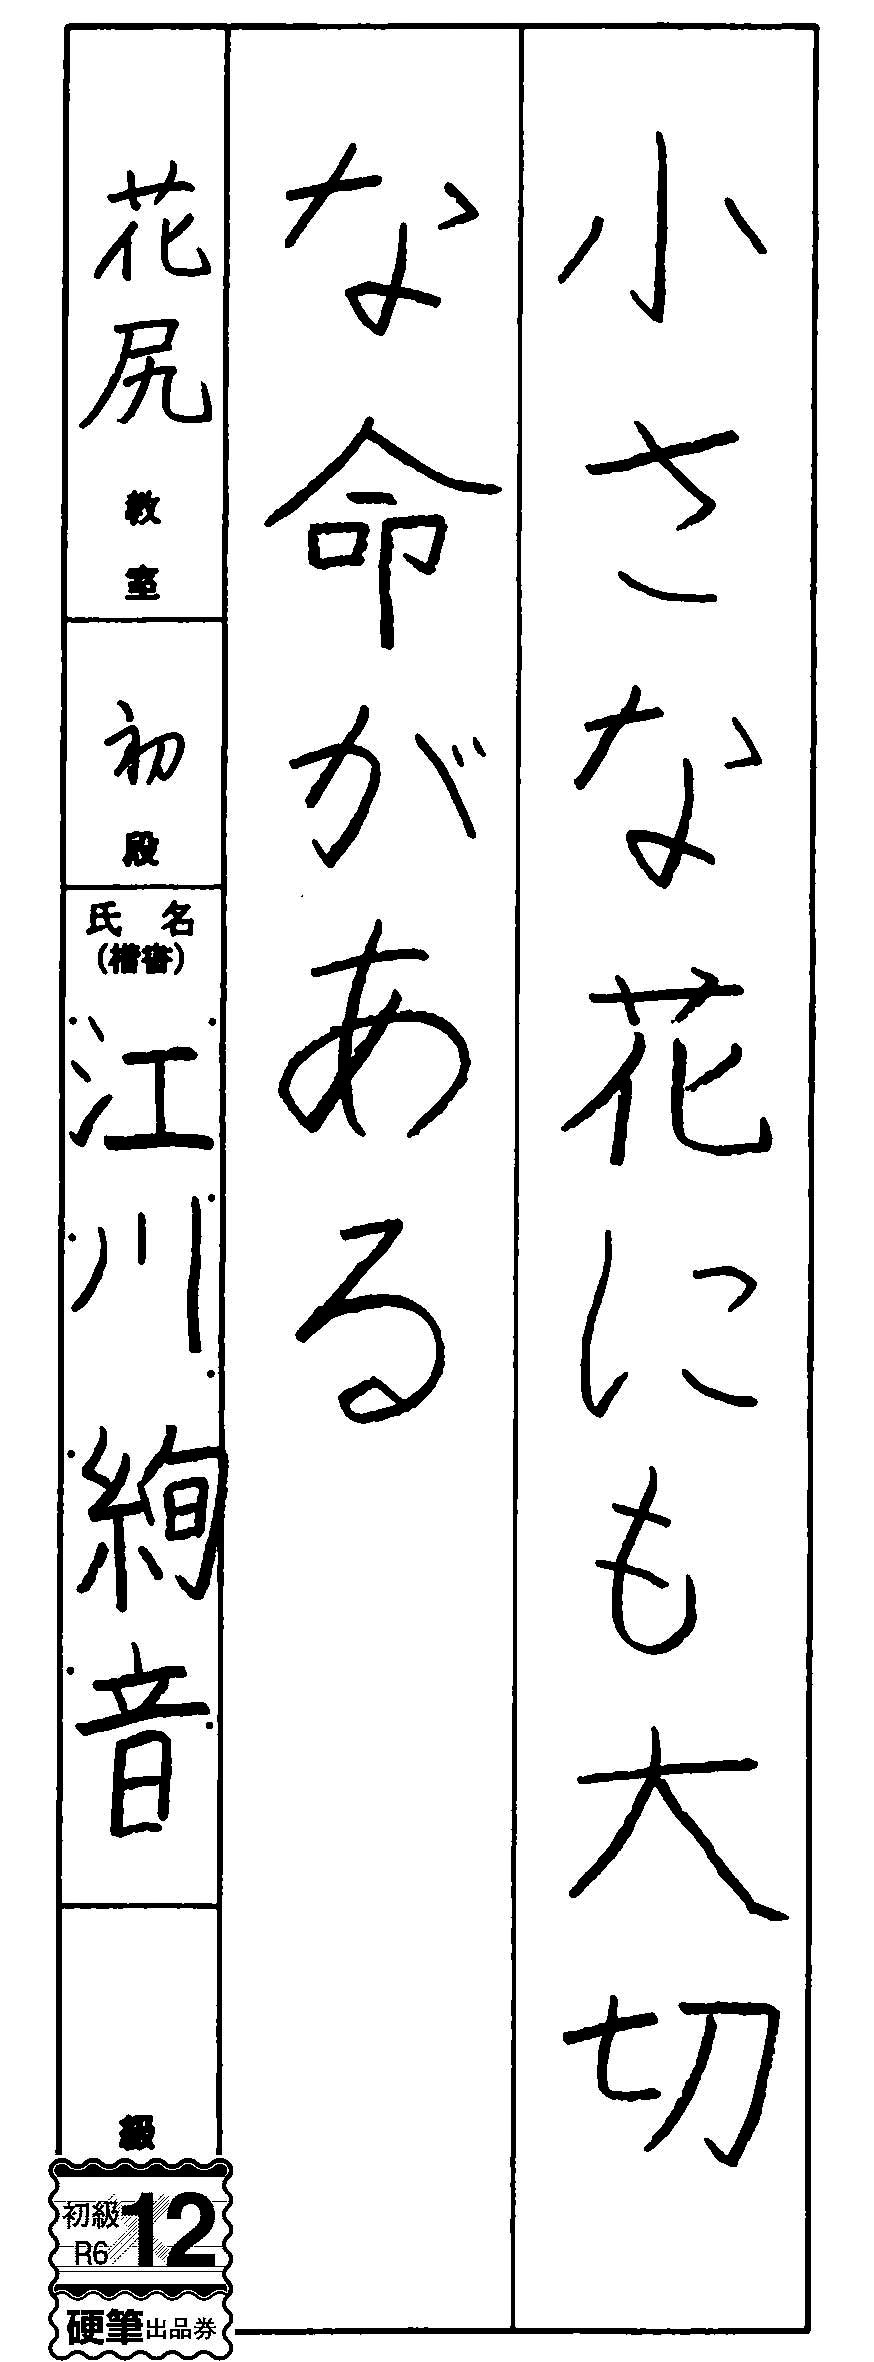 小さな花にも大切
な命がある
花尻教室
初段
氏名
(楷書)
江川絢音
級
初級
R6
12
硬筆出品券